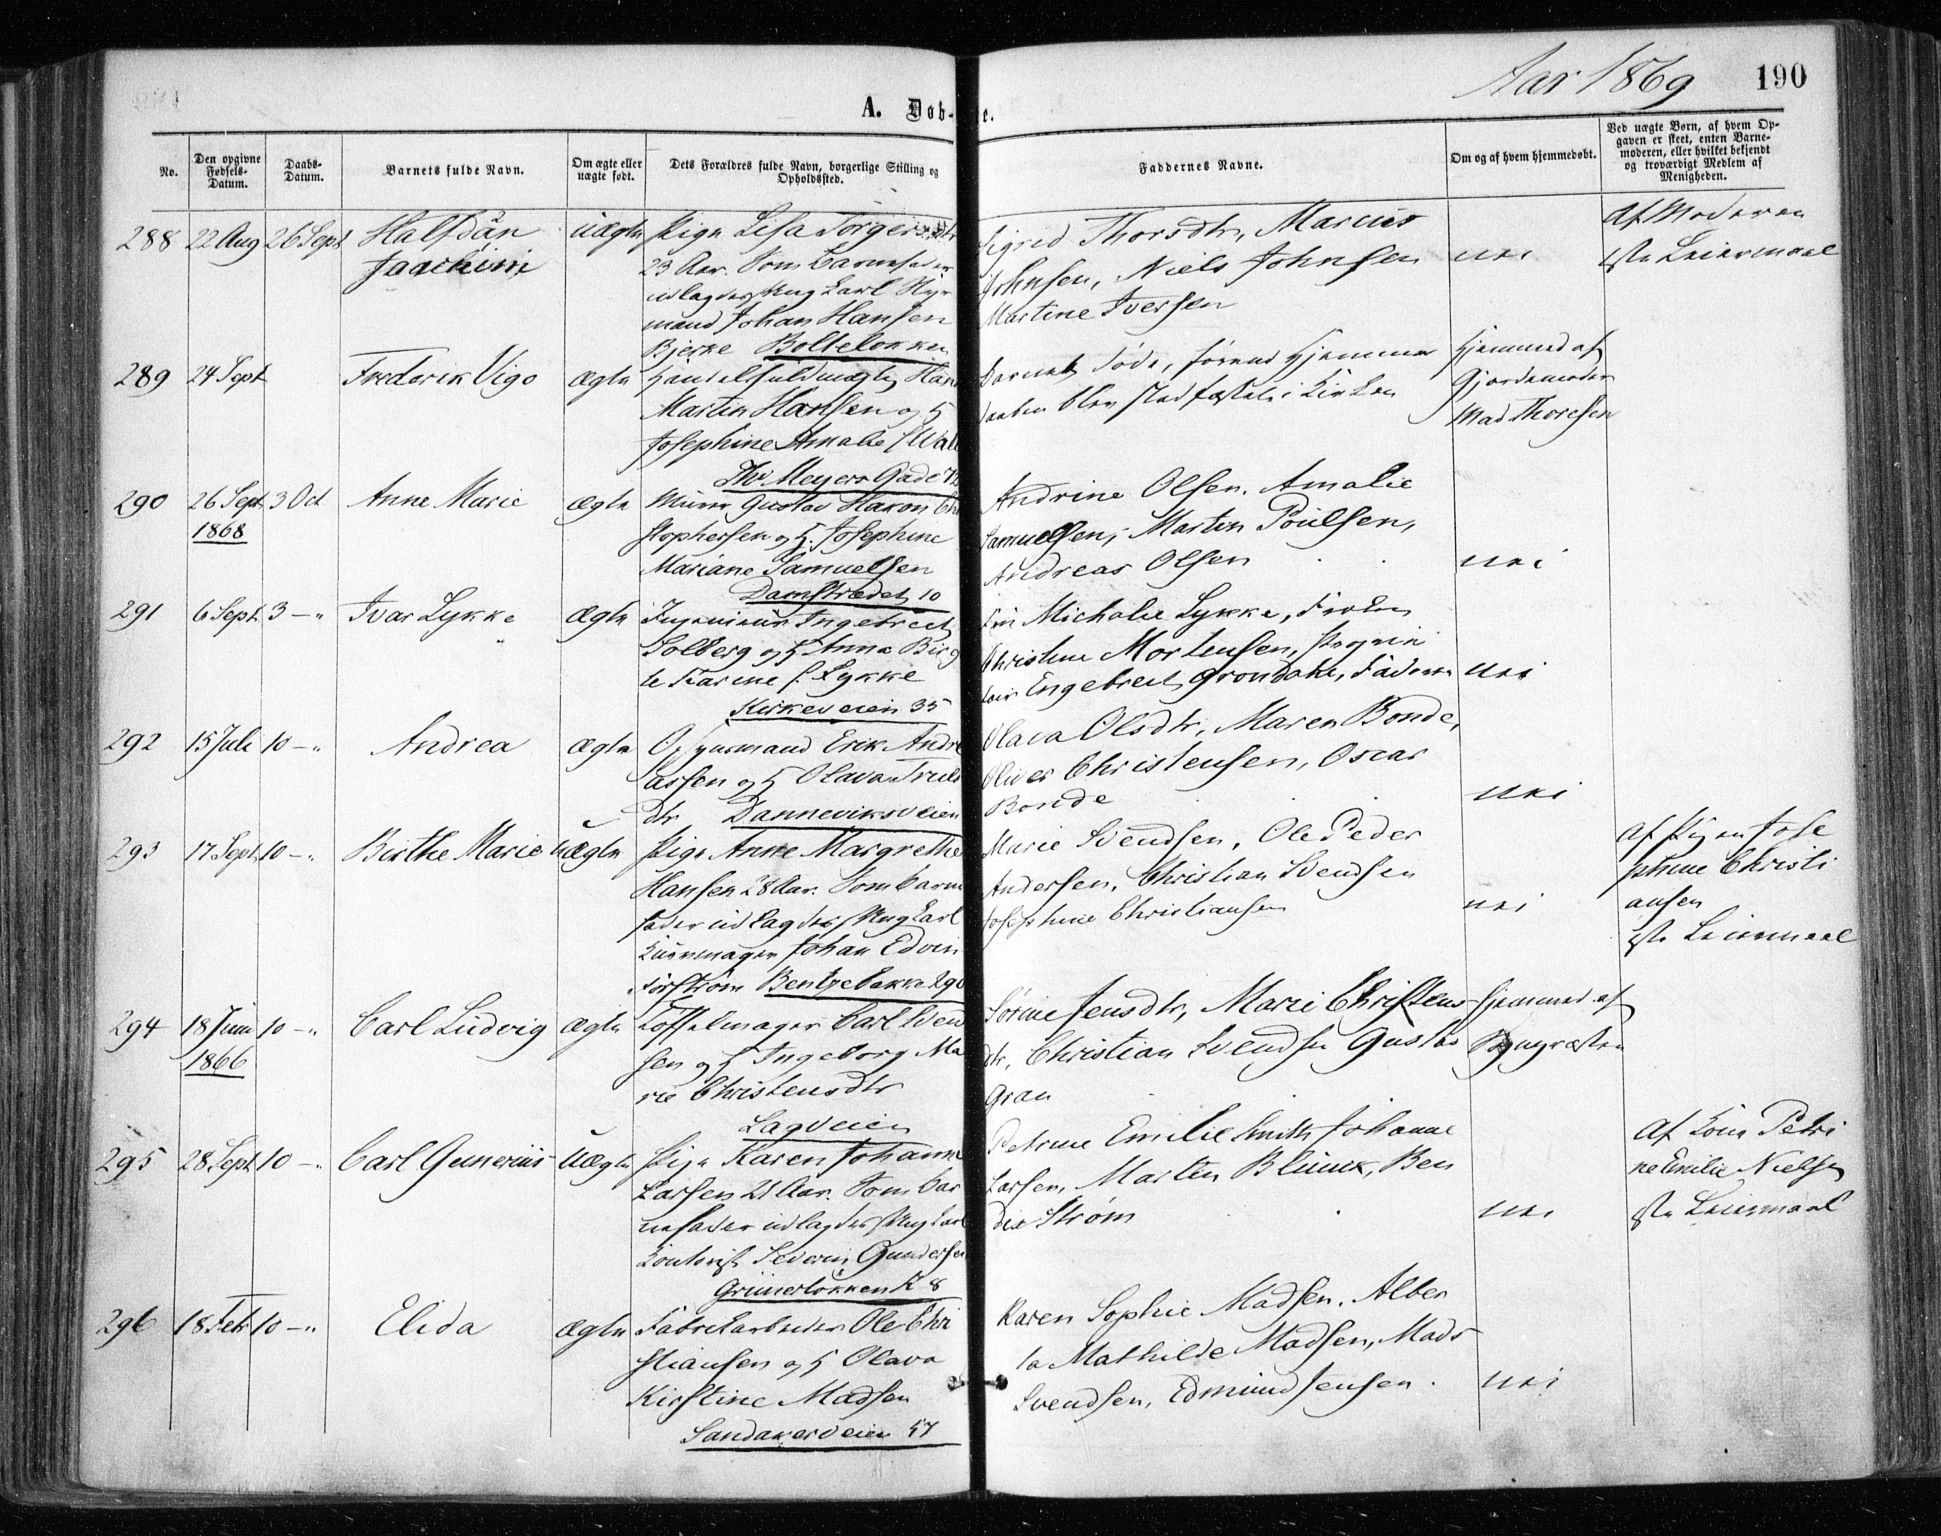 Aar 1869 190
A. Døb- e.
No.
Den opgivne
Fødsels-
Datum.
Daabs-
Datum.
Barnets fulde Navn.
Om ægte eller
uægte født.
Dets Forældres fulde Navn, borgerlige Stilling og
Opholdssted.
Faddernes Navne.
Om og af hvem hjemmedøbt.
Ved uægte Børn, af hvem Op-
gaven er skeet, enten Barne-
moderen, eller hvilket bekjendt
og troværdigt Medlem af
Menigheden.
288 22 Aug 26 Sept Halfdan
Joachim
uægte
Pige Lisa Torgersdtr
23 Aar. Som Barnefader
udlagdes Ung Karl Hyr
mand Johan Hansen
Bjerke Bolteløkken
Sigrid Thorsdtr, Marcus
Johnsen, Niels Johnsen
Martine Iversen
nei
Af Moderen
1ste Leiermaal
289 24 Sept Frederik Vigo ægte
Handelsfuldmægtig Hans
Martin Hansen og H
Josephine Amalie f Wall
Thv Meyers Gade
Barnet døde, førend Hjemme
daaben blev stadfæstet i Kirken
Hjemmed af
Gjordemoder
Mad Thoresen
290 26 Sept 1868 3 Oct Anne Marie ægte
Murer Gustav Hakon Chri
stophersen og H. Josephine
Mariane Samuelsen
Damstrædet 10
Andrine Olsen, Amalie
Samuelsen, Martin Poulsen,
Andreas Olsen
nei
291 6 Sept 3 - " Ivar Lykke ægte
Ingenieur Ingebret
Solberg og H Anna Birgi
te Karine f. Lykke
Kirkeveien 35
Fru Michalie Lykke, Frøken
Christine Mortensen,
Engebret Grøndahl, Faderen
nei
292 15 Juli 10 - " Andrea ægte
Opsynsmand Erik Andre
assen og H Olava Truls
dtr Danneviksveien
Olava Olsdtr, Maren Bonde,
Oliver Christensen, Oscar
Bonde
nei
293 17 Sept 10 - " Birthe Marie uægte
Pige Anne Margrethe
Hansen 28 Aar. Som Barne
fader udlagdes Ung Karl
Buntmager Johan Edvin
Forstrøm Bentzebakke 290
Marie Svendsen, Ole Peder
Andersen, Christian Svendsen
Josephine Christiansen
nei
Af Pigen Jose
phine Christi
ansen
1ste Leiermaal
294 18 Juni 1866 10 - " Carl Ludvig ægte
Toffelmager Carl Svend
sen og H Ingeborg Ma
rie Christensdtr
Lagveien
Sørine Jensdtr, Marie Christens
dtr, Christian Svendsen Gustav
Gran
Hjemmed af
Sognepræsten
295 28 Sept 10 - " Carl Gunerius uægte
Pige Karen Johanne
Larsen 21 Aar. Som Bar
nefader udlagdes Ung Karl
Kontorist Severin Gundersen
Grünerløkken K 8
Petrine Emilie Smith Johanne
Larsen, Martin Blunck, Ben
dix Strøm
nei
Af Kone Petri
ne Emilie Nielsen
1ste Leiermaal
296 18 Febr 10 - " Elida ægte
Fabrikarbeider Ole Chri
stiansen og H Olava
Kirstine Madsen
Sandakerveien 57
Karen Sophie Madsen, Alber
ta Mathilde Madsen, Mads
Svendsen, Edmund Jensen.
nei